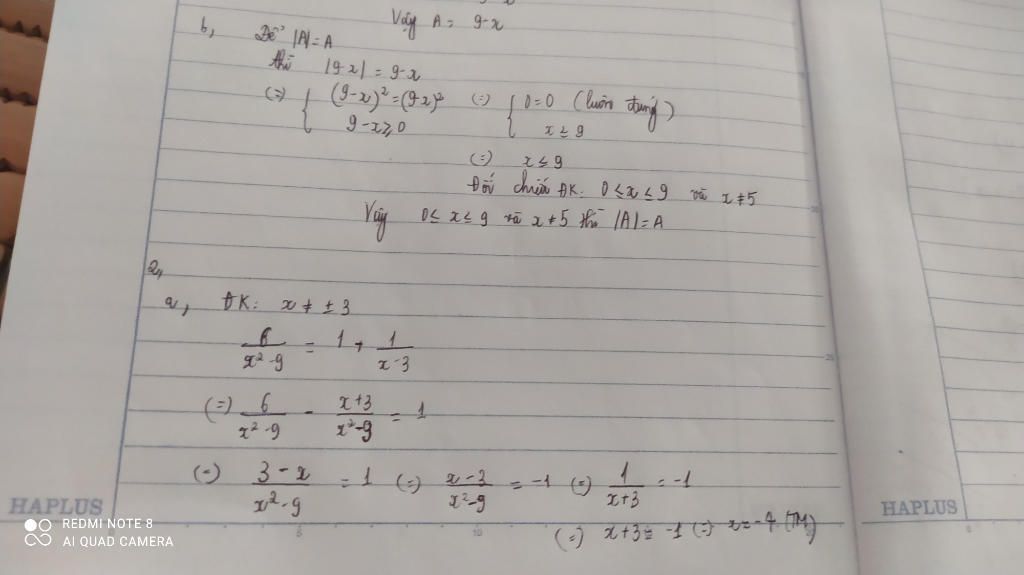 Vậy A = 9-x
b, Để |A| = A
thì |9-x| = 9-x
(=) { (9-x)² = (9-x)² (=) { 0=0 (luôn đúng)
9-x ≥ 0 x ≤ 9
(=) x ≤ 9
Đối chiếu ĐK: 0 ≤ x ≤ 9 và x ≠ 5
Vậy 0 ≤ x ≤ 9 và x ≠ 5 thì |A| = A
2,
a, ĐK: x ≠ ± 3
6/(x²-9) = 1 + 1/(x-3)
(=) 6/(x²-9) - (x+3)/(x²-9) = 1
(=) (3-x)/(x²-9) = 1 (=) (x-3)/(x²-9) = -1 (=) 1/(x+3) = -1
(=) x+3 = -1 (=) x = -4 (TM)
HAPLUS
HAPLUS
REDMI NOTE 8
AI QUAD CAMERA
5
10
25